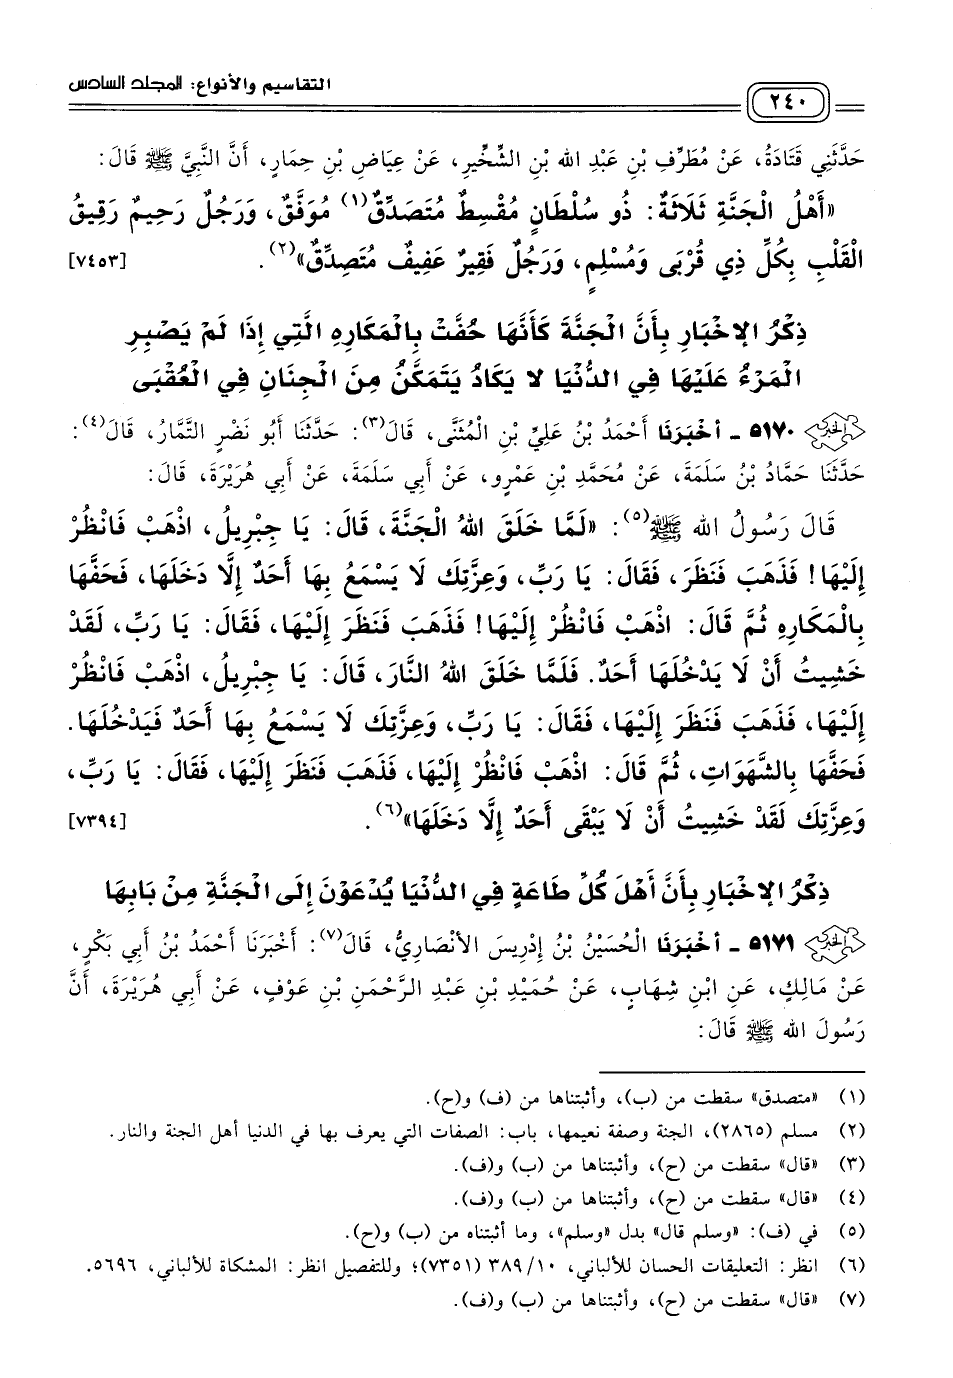 التقاسيم والأنواع: المجلد السادس
٢٤٠
حَدَّثَنِي قَتَادَةُ، عَنْ مُطَرِّفِ بْنِ عَبْدِ الله بْنِ الشِّخِّيرِ، عَنْ عِيَاضِ بْنِ حِمَارٍ، أَنَّ النَّبِيَّ ﷺ قَالَ:
«أَهْلُ الْجَنَّةِ ثَلَاثَةٌ: ذُو سُلْطَانٍ مُقْسِطٌ مُتَصَدِّقٌ(١) مُوَفَّقٌ، وَرَجُلٌ رَحِيمٌ رَقِيقُ
الْقَلْبِ بِكُلِّ ذِي قُرْبَى وَمُسْلِمٍ، وَرَجُلٌ فَقِيرٌ عَفِيفٌ مُتَصَدِّقٌ»(٢). [٧٤٥٣]
ذِكْرُ الإخْبَارِ بِأَنَّ الْجَنَّةَ كَأَنَّهَا حُفَّتْ بِالْمَكَارِهِ الَّتِي إِذَا لَمْ يَصْبِرِ
الْمَرْءُ عَلَيْهَا فِي الدُّنْيَا لا يَكَادُ يَتَمَكَّنُ مِنَ الْجِنَانِ فِي الْعُقْبَى
٥١٧٠ - أَخْبَرَنَا أَحْمَدُ بْنُ عَلِيِّ بْنِ الْمُثَنَّى، قَالَ(٣): حَدَّثَنَا أَبُو نَصْرٍ التَّمَّارُ، قَالَ(٤):
حَدَّثَنَا حَمَّادُ بْنُ سَلَمَةَ، عَنْ مُحَمَّدِ بْنِ عَمْرٍو، عَنْ أَبِي سَلَمَةَ، عَنْ أَبِي هُرَيْرَةَ، قَالَ:
قَالَ رَسُولُ الله ﷺ(٥): «لَمَّا خَلَقَ اللهُ الْجَنَّةَ، قَالَ: يَا جِبْرِيلُ، اذْهَبْ فَانْظُرْ
إِلَيْهَا! فَذَهَبَ فَنَظَرَ، فَقَالَ: يَا رَبِّ، وَعِزَّتِكَ لَا يَسْمَعُ بِهَا أَحَدٌ إِلَّا دَخَلَهَا، فَحَفَّهَا
بِالْمَكَارِهِ ثُمَّ قَالَ: اذْهَبْ فَانْظُرْ إِلَيْهَا! فَذَهَبَ فَنَظَرَ إِلَيْهَا، فَقَالَ: يَا رَبِّ، لَقَدْ
خَشِيتُ أَنْ لَا يَدْخُلَهَا أَحَدٌ. فَلَمَّا خَلَقَ اللهُ النَّارَ، قَالَ: يَا جِبْرِيلُ، اذْهَبْ فَانْظُرْ
إِلَيْهَا، فَذَهَبَ فَنَظَرَ إِلَيْهَا، فَقَالَ: يَا رَبِّ، وَعِزَّتِكَ لَا يَسْمَعُ بِهَا أَحَدٌ فَيَدْخُلَهَا.
فَحَفَّهَا بِالشَّهَوَاتِ، ثُمَّ قَالَ: اذْهَبْ فَانْظُرْ إِلَيْهَا، فَذَهَبَ فَنَظَرَ إِلَيْهَا، فَقَالَ: يَا رَبِّ،
وَعِزَّتِكَ لَقَدْ خَشِيتُ أَنْ لَا يَبْقَى أَحَدٌ إِلَّا دَخَلَهَا»(٦). [٧٣٩٤]
ذِكْرُ الإخْبَارِ بِأَنَّ أَهْلَ كُلِّ طَاعَةٍ فِي الدُّنْيَا يُدْعَوْنَ إِلَى الْجَنَّةِ مِنْ بَابِهَا
٥١٧١ - أَخْبَرَنَا الْحُسَيْنُ بْنُ إِدْرِيسَ الأَنْصَارِيُّ، قَالَ(٧): أَخْبَرَنَا أَحْمَدُ بْنُ أَبِي بَكْرٍ،
عَنْ مَالِكٍ، عَنِ ابْنِ شِهَابٍ، عَنْ حُمَيْدِ بْنِ عَبْدِ الرَّحْمَنِ بْنِ عَوْفٍ، عَنْ أَبِي هُرَيْرَةَ، أَنَّ
رَسُولَ الله ﷺ قَالَ:
(١) «متصدق» سقطت من (ب)، وأثبتناها من (ف) و(ح).
(٢) مسلم (٢٨٦٥)، الجنة وصفة نعيمها، باب: الصفات التي يعرف بها في الدنيا أهل الجنة والنار.
(٣) «قال» سقطت من (ح)، وأثبتناها من (ب) و(ف).
(٤) «قال» سقطت من (ح)، وأثبتناها من (ب) و(ف).
(٥) في (ف): «وسلم قال» بدل «وسلم»، وما أثبتناه من (ب) و(ح).
(٦) انظر: التعليقات الحسان للألباني، ١٠/ ٣٨٩ (٧٣٥١)؛ وللتفصيل انظر: المشكاة للألباني، ٥٦٩٦.
(٧) «قال» سقطت من (ح)، وأثبتناها من (ب) و(ف).